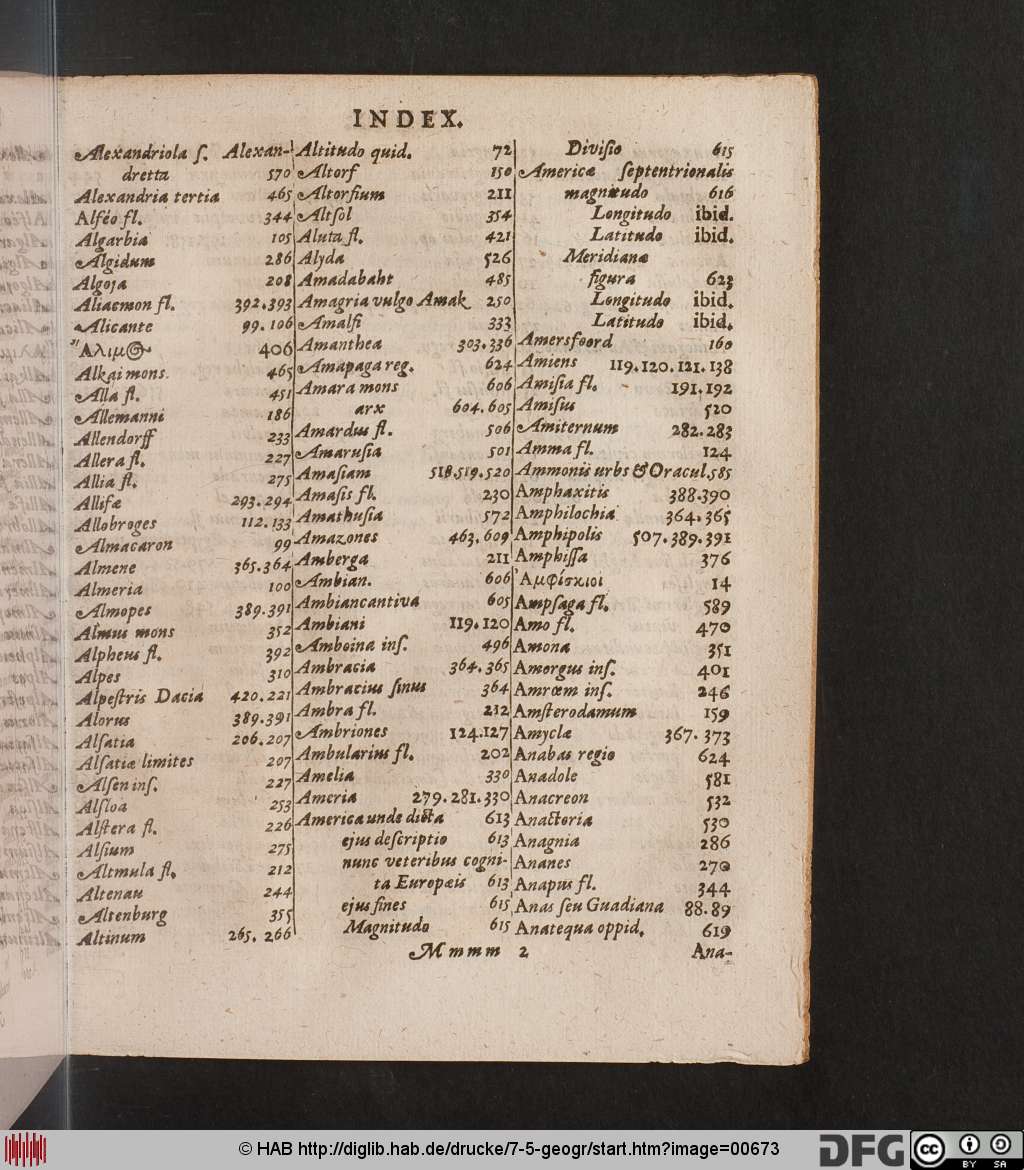 INDEX.
Alexandriola ſ. Alexan-
dretta 570
Alexandria tertia 465
Alféo fl. 344
Algarbia 105
Algidum 286
Algoja 208
Aliacmon fl. 392.393
Alicante 99.106
Ἄλιμος 406
Alkai mons. 465
Alla fl. 451
Allemanni 186
Allendorff 233
Allera fl. 227
Allia fl. 275
Alliſæ 293.294
Allobroges 112.133
Almacaron 99
Almene 365.364
Almeria 100
Almopes 389.391
Almus mons 352
Alpheus fl. 392
Alpes 310
Alpeſtris Dacia 420.221
Alorus 389.391
Alſatia 206.207
Alſatiæ limites 207
Alſen inſ. 227
Alſloa 253
Alſtera fl. 226
Alſium 275
Altmula fl. 212
Altenau 244
Altenburg 355
Altinum 265.266
Altitudo quid. 72
Altorf 150
Altorfium 211
Altſol 354
Aluta fl. 421
Alyda 526
Amadabaht 485
Amagria vulgo Amak 250
Amalfi 333
Amanthea 303.336
Amapaga reg. 624
Amara mons 606
arx 604.605
Amardus fl. 506
Amaruſia 501
Amaſiam 518.519.520
Amaſis fl. 230
Amathuſia 572
Amazones 463.609
Amberga 211
Ambian. 606
Ambiancantiva 605
Ambiani 119.120
Amboina inſ. 496
Ambracia 364.365
Ambracius ſinus 364
Ambra fl. 212
Ambriones 124.127
Ambularius fl. 202
Amelia 330
Ameria 279.281.330
America unde dicta 613
ejus deſcriptio 613
nunc veteribus cogni-
ta Europæis 613
ejus fines 615
Magnitudo 615
Diviſio 615
Americæ ſeptentrionalis
magnitudo 616
Longitudo ibid.
Latitudo ibid.
Meridianæ
figura 623
Longitudo ibid.
Latitudo ibid.
Amersfoord 160
Amiens 119.120.121.138
Amiſia fl. 191.192
Amiſus 520
Amiternum 282.283
Amma fl. 124
Ammonis urbs & Oracul. 585
Amphaxitis 388.390
Amphilochia 364.365
Amphipolis 507.389.391
Amphiſſa 376
Ἀμφίσκιοι 14
Ampſaga fl. 589
Amo fl. 470
Amona 351
Amorgus inſ. 401
Amrœm inſ. 246
Amſterodamum 159
Amyclæ 367.373
Anabas regio 624
Anadole 581
Anacreon 532
Anactoria 530
Anagnia 286
Ananes 270
Anapus fl. 344
Anas ſeu Guadiana 88.89
Anatequa oppid. 619
Mmmm 2 Ana-
© HAB http://diglib.hab.de/drucke/7-5-geogr/start.htm?image=00673
DFG
cc BY SA